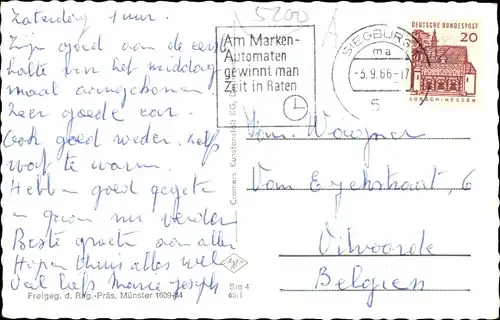 5200
Zaterdag 1 uur.
Zijn goed aan de eerst
halte van het middag
maal aangekomen
Zeer goede car.
Ook goed weder, zelfs
wat te warm.
Hebben goed gegeten
en gaan nu verder
Beste groeten aan allen
Hopen thuis alles wel
Marie-Joseph
Freigeg. d. Reg.-Präs. Münster 1609/64
Cramers Kunstanstalt KG,
Sie 4
65/1
Am Marken-
Automaten
gewinnt man
Zeit in Raten
SIEGBURG
ma
-3.9.66-17
5
DEUTSCHE BUNDESPOST
20
LORSCH/HESSEN
Fam.
Van Eyckstraat, 6
Vilvoorde
Belgien